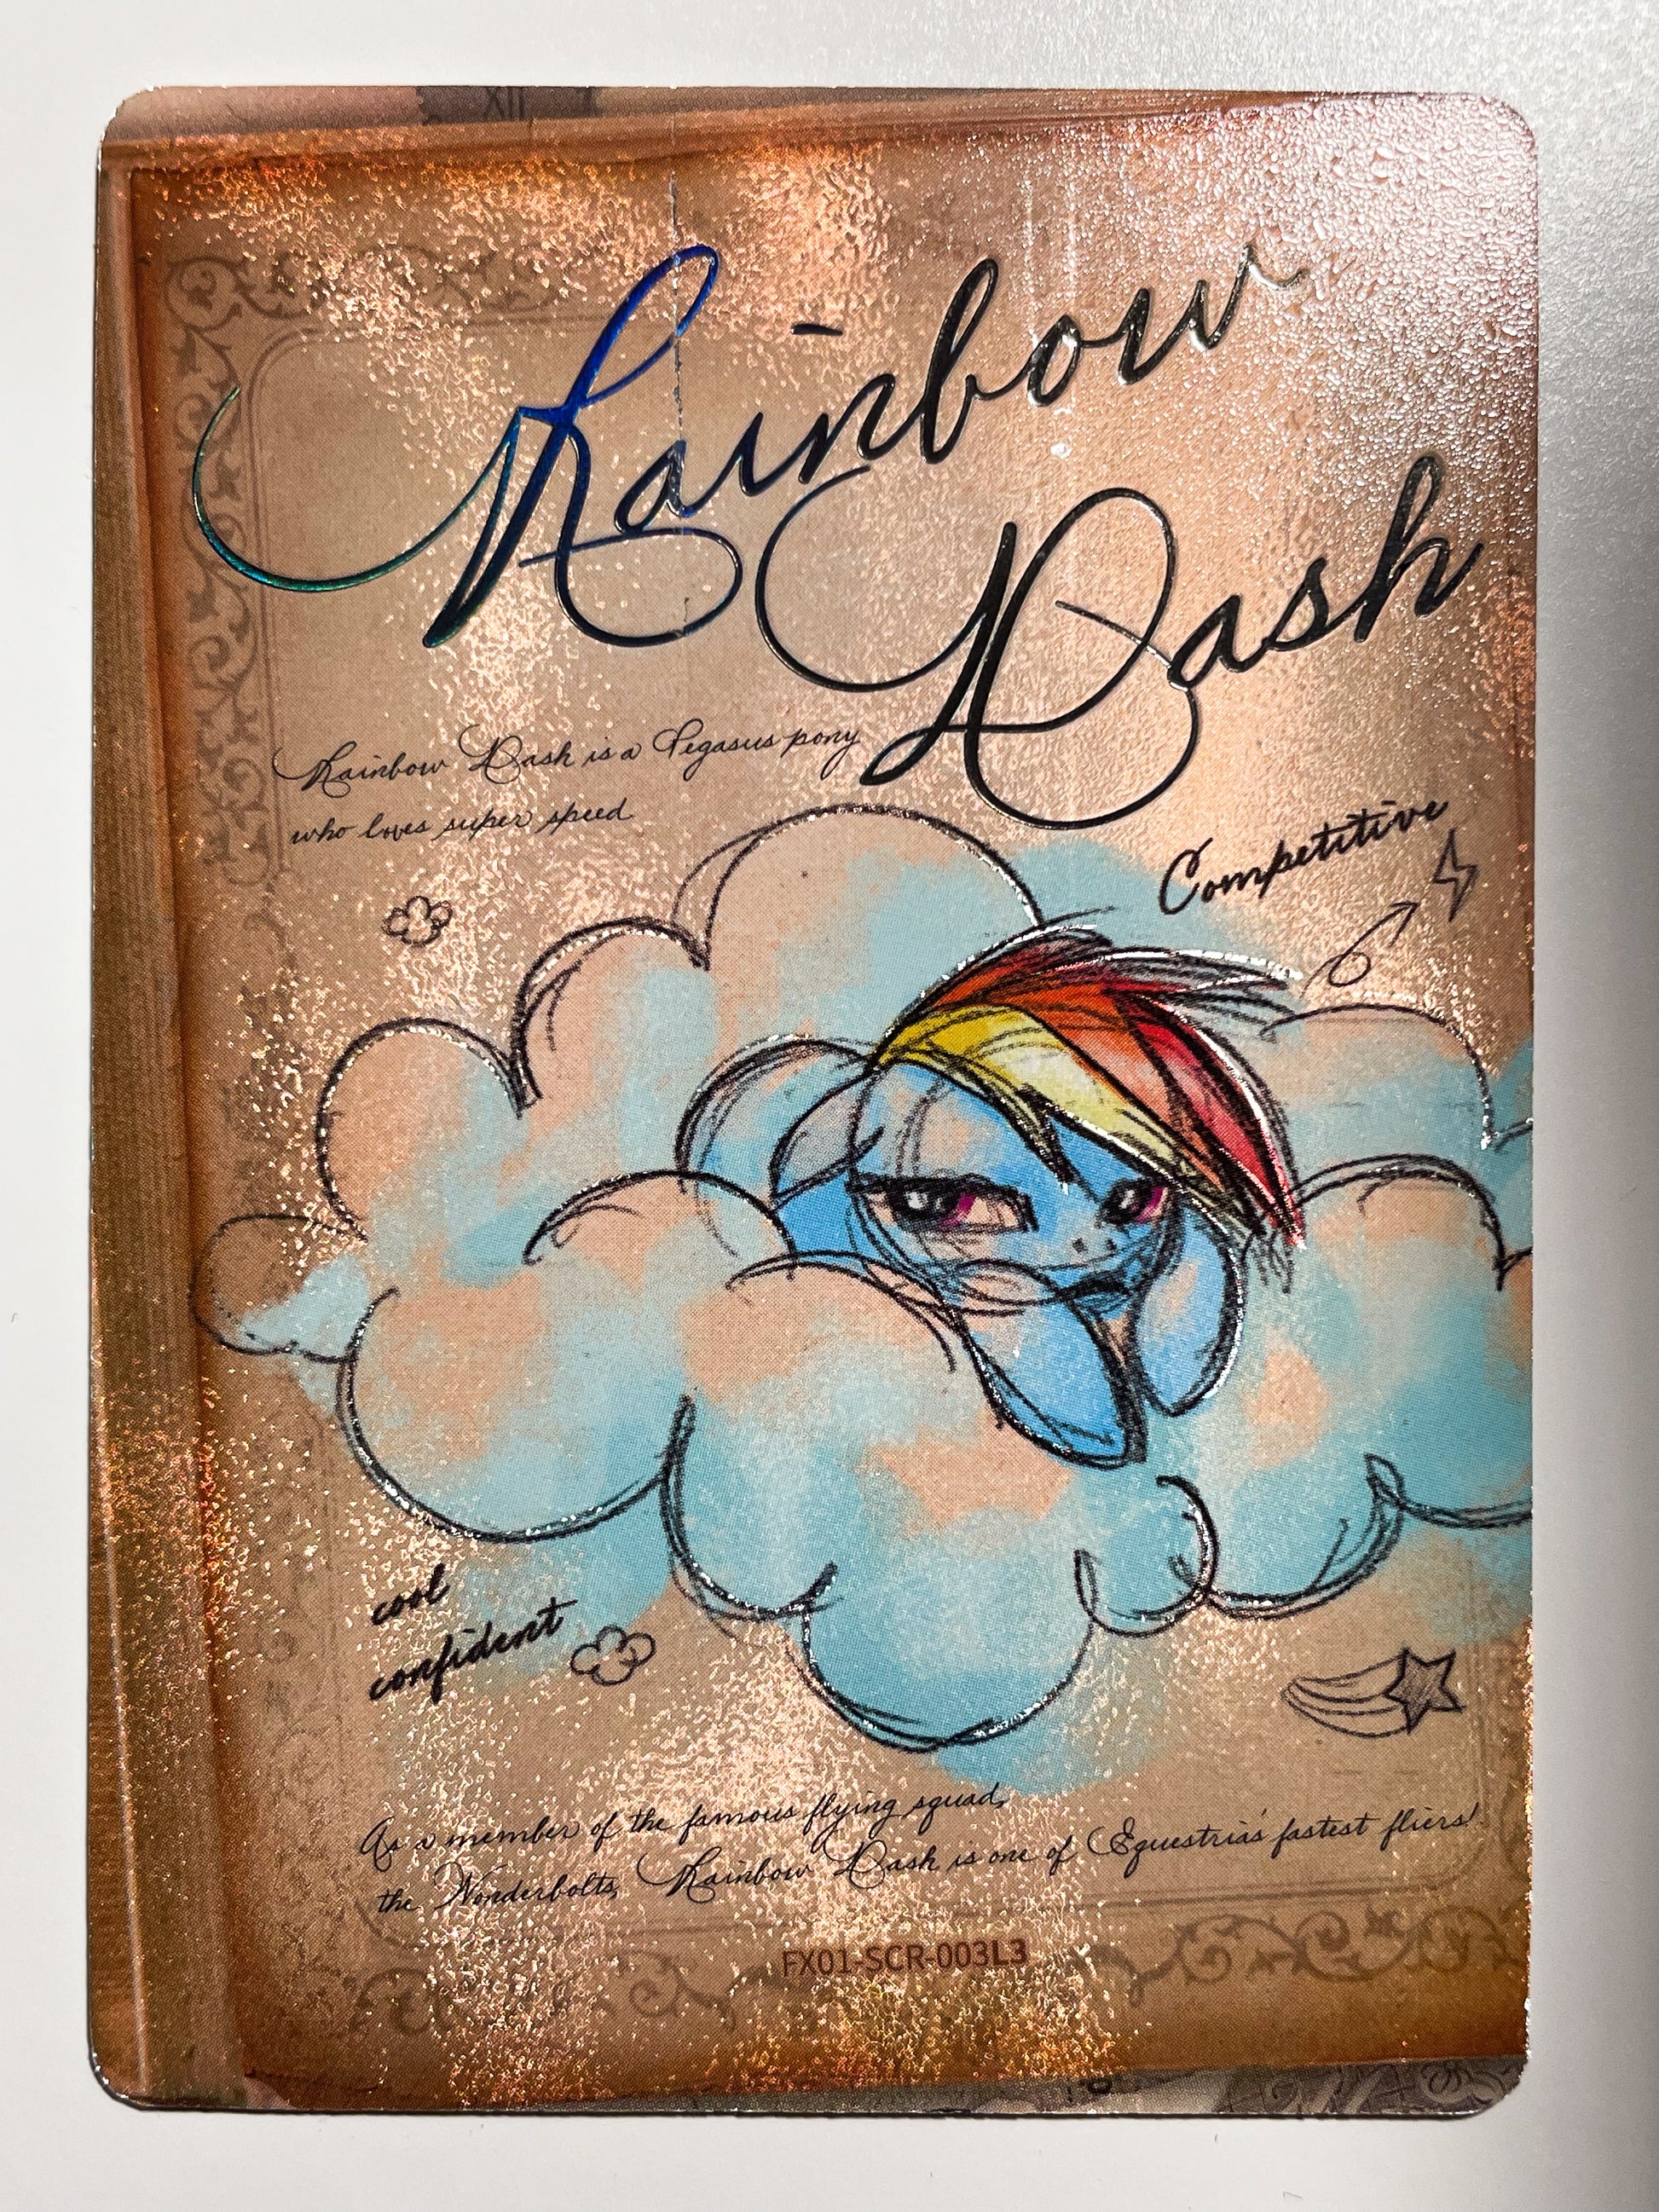 XII
Rainbow
Dash
Rainbow Dash is a Pegasus pony
who loves super speed
Competitive
cool
confident
As a member of the famous flying squad,
the Wonderbolts, Rainbow Dash is one of Equestria's fastest fliers!
FX01-SCR-003L3